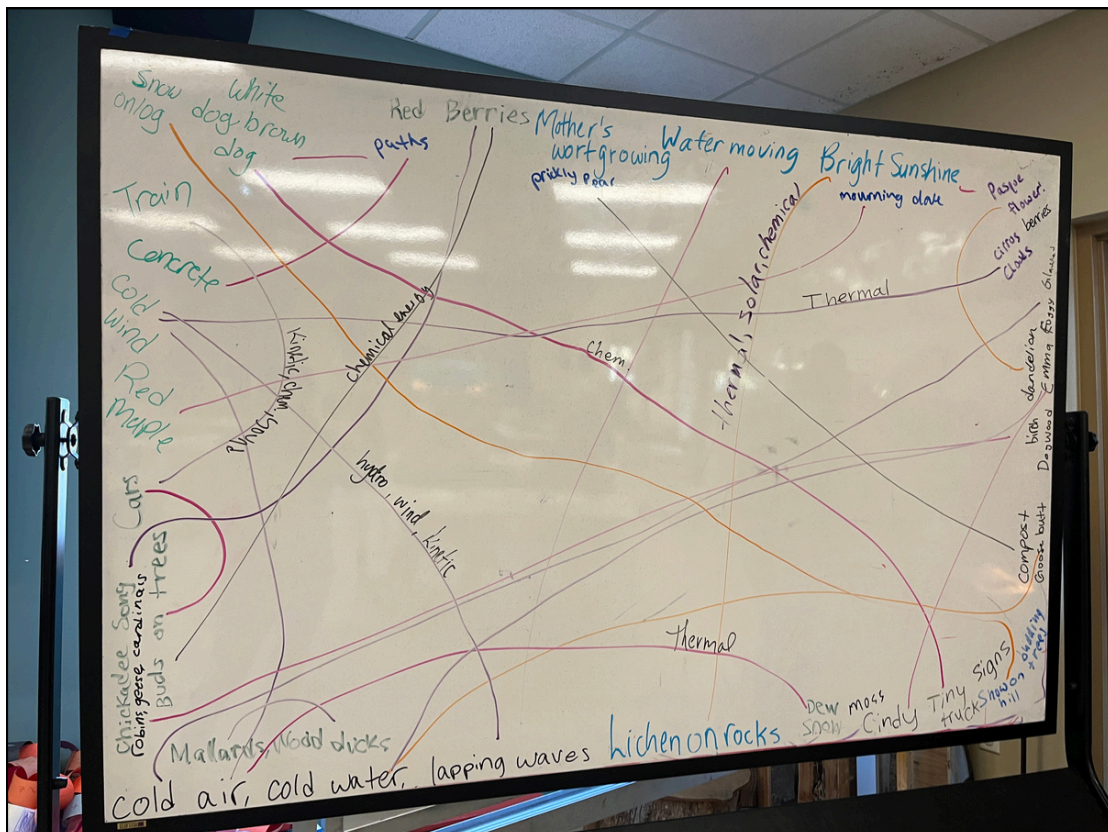 Snow
on log
White
dog, brown
dog
paths
Red Berries
Mother's
wort growing
prickly pear
Water moving
Bright Sunshine
mourning dove
Pasque
flower
berries
cirrus
clouds
Train
Concrete
Cold
Wind
Red
Maple
Cars
Buds on trees
Chickadee Song
robins, geese, cardinals
Thermal
chemical energy
Chem.
thermal, solar, chemical
hydro, wind, kinetic
thermal
dandelion
Emma
birch
Dogwood
compost
Goose butt
budding
trees
Signs
Snow on
hill
Tiny
truck
moss
Cindy
Dew
Snow
Lichen on rocks
Mallards, Wood ducks
cold air, cold water, lapping waves